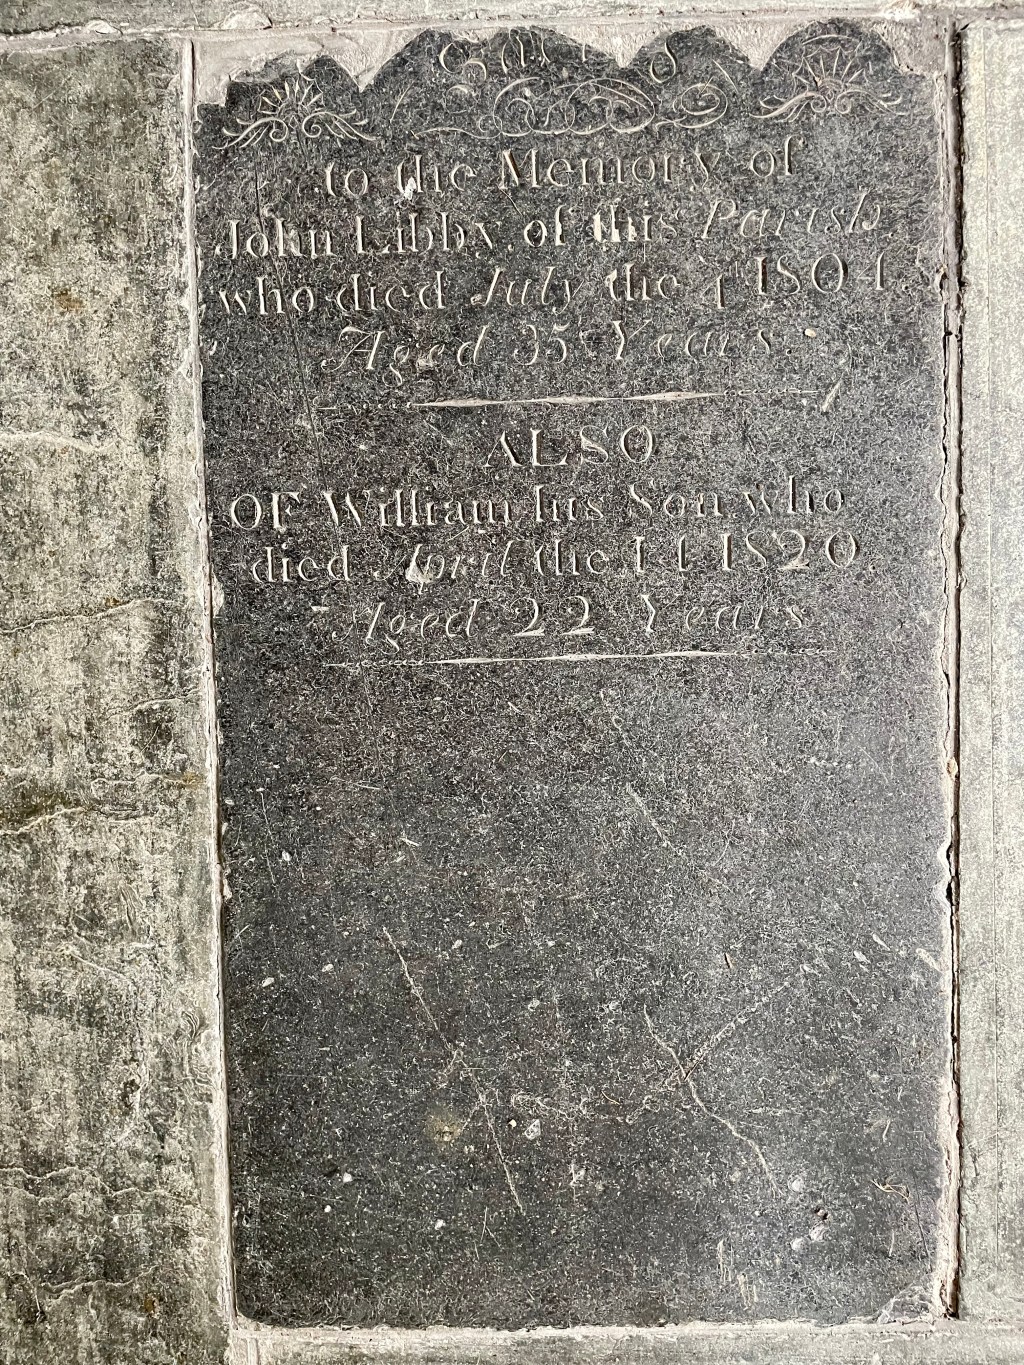 Sacred
to the Memory of
John Libby of this Parish
who died July the 4th 1804
Aged 35 Years
ALSO
OF William his Son who
died April the 14 1820
Aged 22 Years